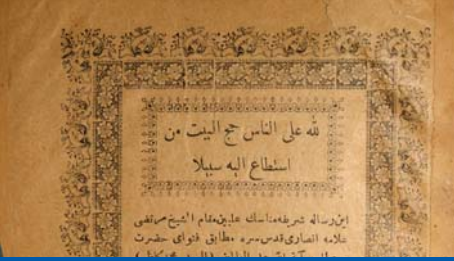 لله علی الناس حج البیت من
استطاع الیه سبیلا
این رساله شریفه مناسک علیین مقام الشیخ مرتضی
علامه انصاری قدس سره مطابق فتوای حضرت